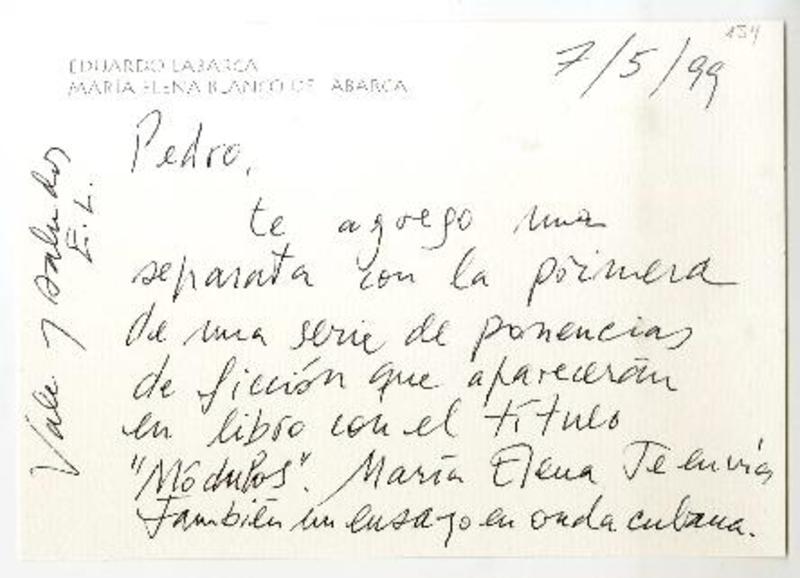 134
EDUARDO LABARCA
MARÍA ELENA BLANCO DE LABARCA
7/5/99
Pedro,
te agrego una
separata con la primera
de una serie de ponencias
de ficción que aparecerán
en libro con el título
"Módulos". María Elena Te envía
También un ensayo en onda cubana.
Vale y saludos
E. L.